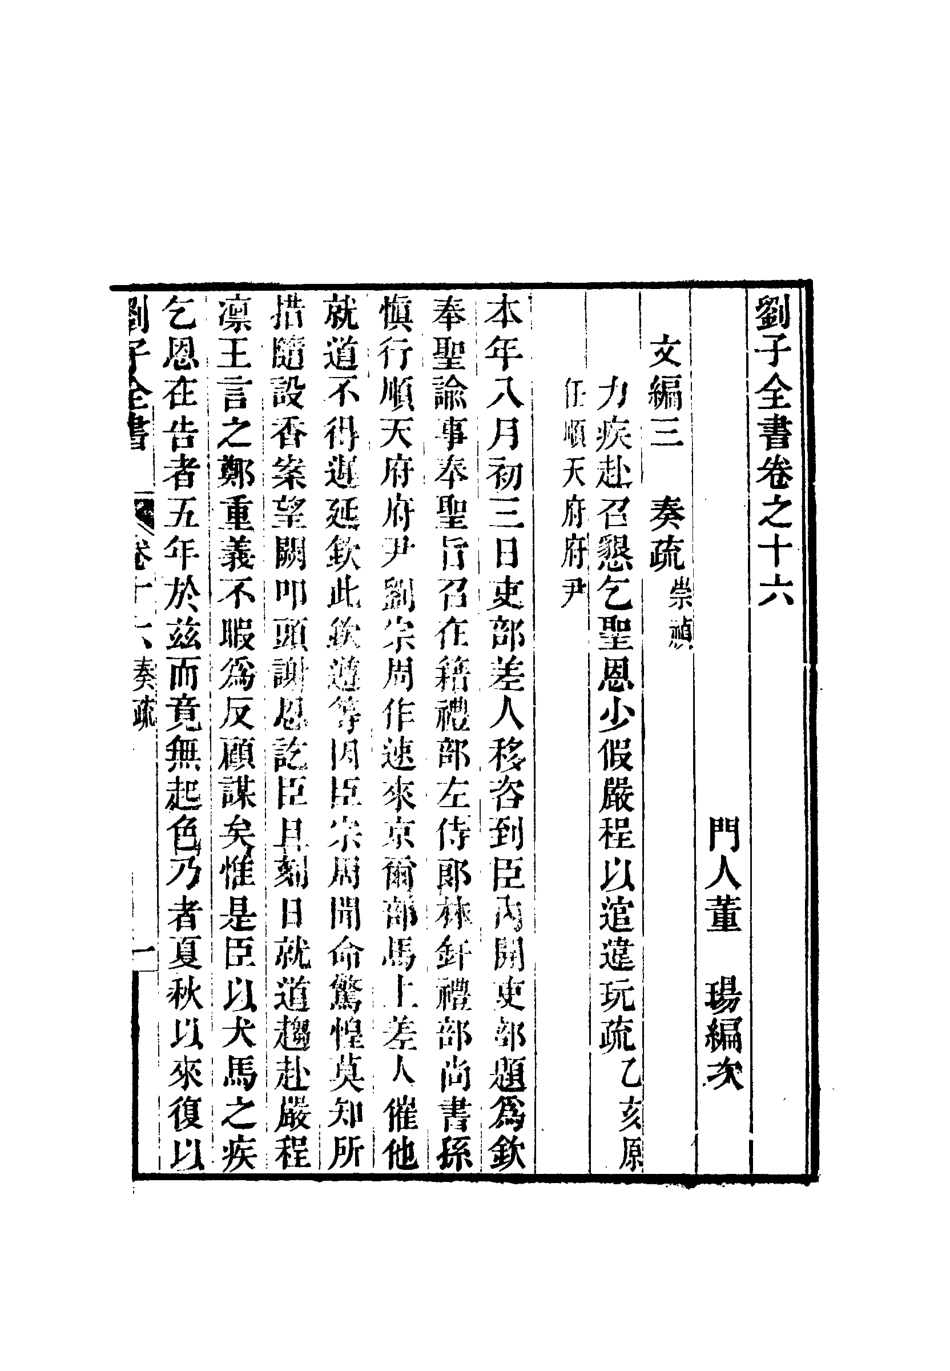 劉子全書卷之十六
門人董 瑒編次
文編三 奏疏崇禎
力疾赴召懇乞聖恩少假嚴程以逭違玩疏乙亥原
任順天府府尹
本年八月初三日吏部差人移咨到臣內開吏部題爲欽
奉聖諭事奉聖旨召在籍禮部左侍郎林釬禮部尚書孫
愼行順天府府尹劉宗周作速來京爾部馬上差人催他
就道不得遲延欽此欽遵等因臣宗周聞命驚惶莫知所
措隨設香案望闕叩頭謝恩訖臣且刻日就道趨赴嚴程
凛王言之鄭重義不暇爲反顧謀矣惟是臣以犬馬之疾
乞恩在告者五年於茲而竟無起色乃者夏秋以來復以
劉子全書 卷十六奏疏 一